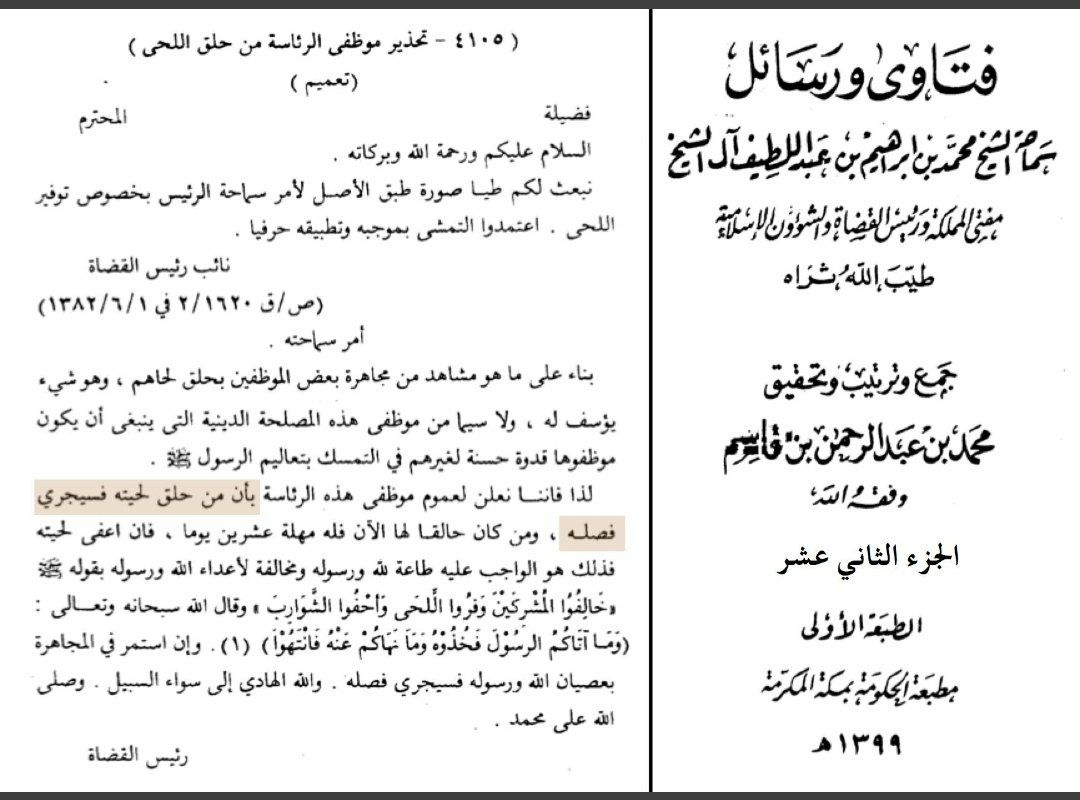 فتاوى ورسائل
سماحة الشيخ محمد بن ابراهيم بن عبد اللطيف آل الشيخ
مفتي المملكة ورئيس القضاة والشؤون الإسلامية
طيب الله ثراه
جمع وترتيب وتحقيق
محمد بن عبد الرحمن بن قاسم
وفقه الله
الجزء الثاني عشر
الطبعة الأولى
مطبعة الحكومة بمكة المكرمة
١٣٩٩هـ
( ٤١٠٥ - تحذير موظفى الرئاسة من حلق اللحى )
( تعميم )
فضيلة المحترم
السلام عليكم ورحمة الله وبركاته .
نبعث لكم طيا صورة طبق الأصل لأمر سماحة الرئيس بخصوص توفير
اللحى . اعتمدوا التمشى بموجبه وتطبيقه حرفيا .
نائب رئيس القضاة
(ص/ق ٢/١٦٢٠ في ١٣٨٢/٦/١)
أمر سماحته .
بناء على ما هو مشاهد من مجاهرة بعض الموظفين بحلق لحاهم ، وهو شيء
يؤسف له ، ولا سيما من موظفى هذه المصلحة الدينية التى ينبغى أن يكون
موظفوها قدوة حسنة لغيرهم في التمسك بتعاليم الرسول ﷺ .
لذا فاننا نعلن لعموم موظفى هذه الرئاسة بأن من حلق لحيته فسيجري
فصله ، ومن كان حالقا لها الآن فله مهلة عشرين يوما ، فان اعفى لحيته
فذلك هو الواجب عليه طاعة لله ورسوله ومخالفة لأعداء الله ورسوله بقوله ﷺ
«خَالِفُوا الْمُشْرِكَيْنَ وَفِرُوا الْلَحَى وَأَحْفُوا الشَّوَارِبَ » وقال الله سبحانه وتعالى :
(وَمَا آتَاكُمُ الرسُوْلَ فَخُذُوْهُ وَمَا نَهَاكُمْ عَنْهُ فَانْتَهُوْا) (١) . وإن استمر في المجاهرة
بعصيان الله ورسوله فسيجري فصله . والله الهادي إلى سواء السبيل . وصلى
الله على محمد .
رئيس القضاة